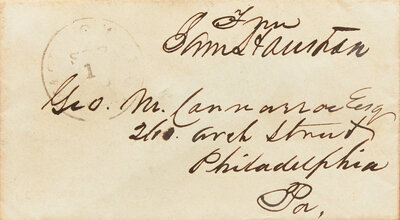 Free
Sam Houston
Geo. M. Conarroe Esq
260. Arch Street
Philadelphia
Pa.